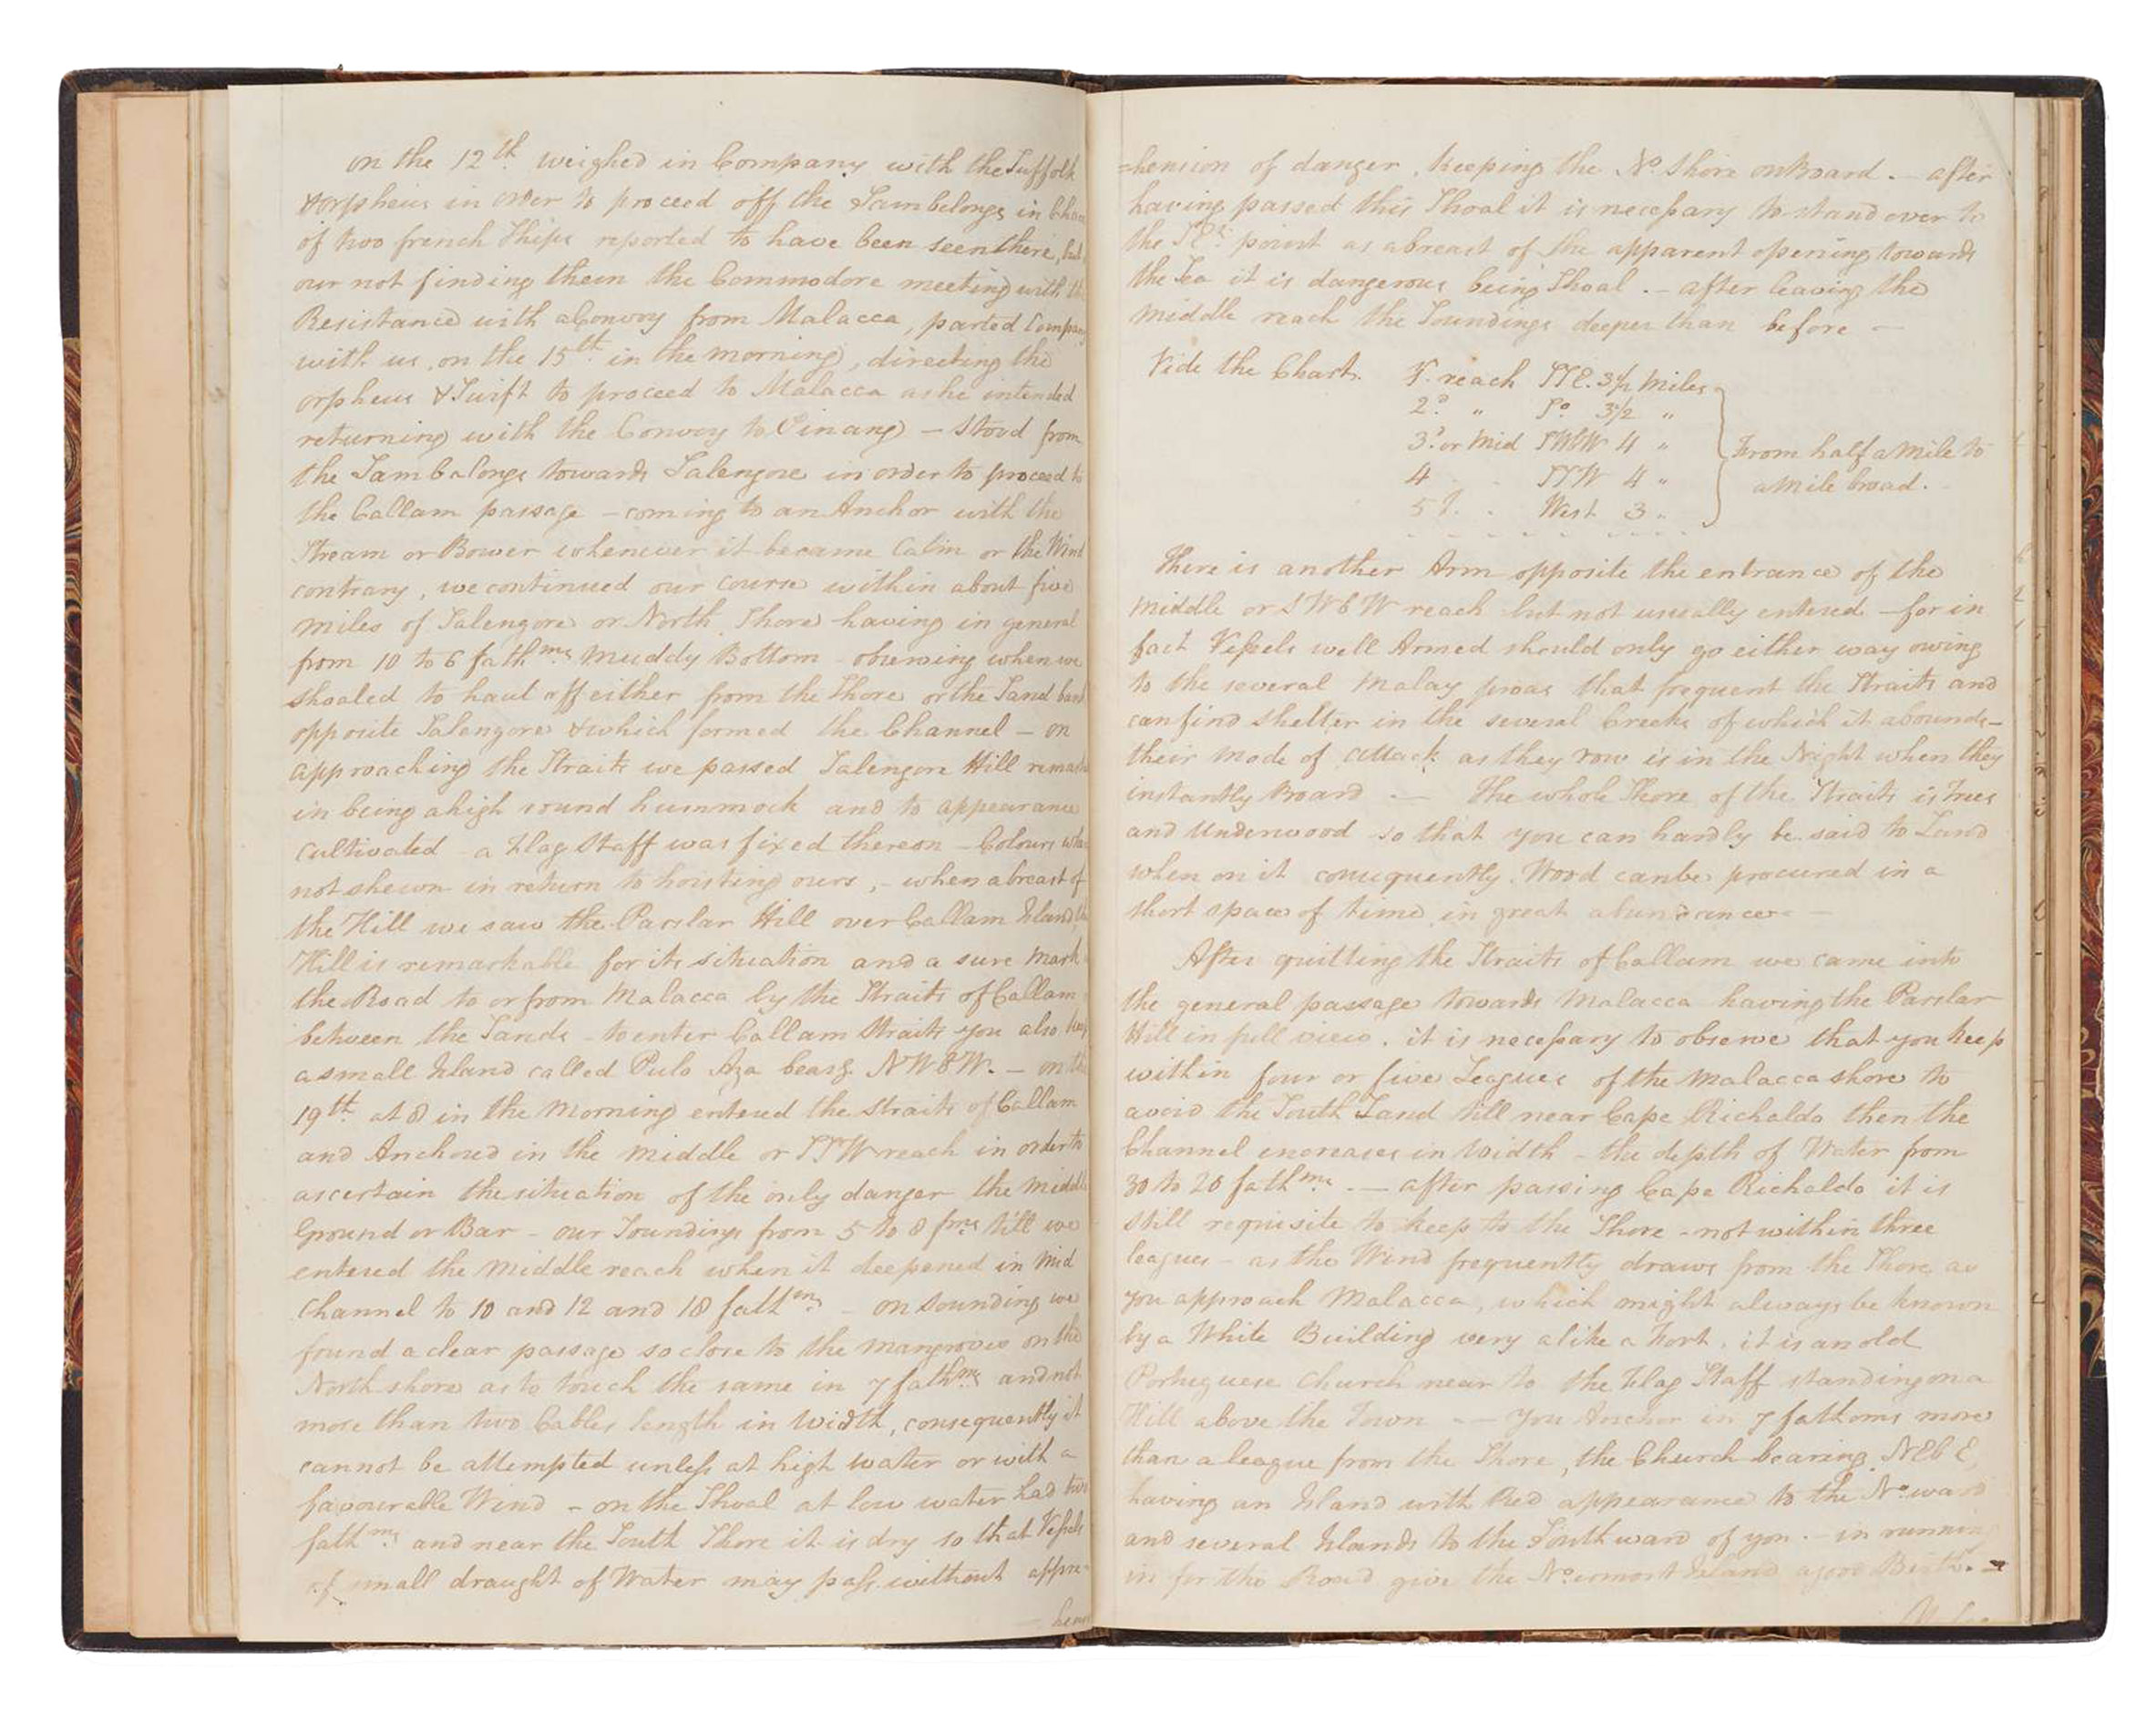 on the 12th weighed in Company with the Suffolk
& orpheus in order to proceed off the Sambelongs in
of two french Ships reported to have been seen there, but
our not finding them the Commodore meeting with the
Resistance with a Convoy from Malacca, parted Company
with us, on the 15th in the morning, directing the
orpheus & Swift to proceed to Malacca as he intended
returning with the Convoy to Pinang - Stood from
the Sambalongs towards Salengore in order to proceed to
the Callam passage - coming to an Anchor with the
Stream or Bower whenever it became Calm or the Wind
contrary, we continued our course within about five
miles of Salengore or North Shore having in general
from 10 to 6 fathms Muddy Bottom - observing when we
shoaled to haul off either from the Shore or the Sand bank
opposite Salengore & which formed the Channel - on
approaching the Straits we passed Salengore Hill
in being a high round hummock and to appearance
cultivated - a Flag Staff was fixed thereon - Colours
not shewn in return to hoisting ours, - when abreast of
the Hill we saw the Parslar Hill over Callam Island,
Hill is remarkable for its situation and a sure mark
the Road to or from Malacca by the Straits of Callam
between the Sands - to enter Callam Straits you also
a small Island called Pulo Aza bearg NWBW. - on the
19th at 8 in the Morning entered the Straits of Callam
and Anchored in the middle or SSW reach in order to
ascertain the situation of the only danger the middle
Ground or Bar - our Soundings from 5 to 8 fms till we
entered the Middle reach when it deepened in Mid
Channel to 10 and 12 and 18 fathms - on sounding we
found a clear passage so close to the mangroves on the
North shore as to touch the same in 7 fathms and not
more than two Cables length in width, consequently it
cannot be attempted unless at high water or with a
favourable Wind - on the Shoal at low water had two
fathms and near the South Shore it is dry so that Vessels
of small draught of Water may pass without appre-
hen
=hension of danger, keeping the No Shore on Board. - after
having passed this Shoal it is necessary to stand over to
the point as abreast of the apparent opening towards
the Sea it is dangerous being Shoal. - after leaving the
Middle reach the Soundings deeper than before -
Vide the Chart. reach SSE. 3½ Miles
2d " So 3½ "
3d or Mid SWbW 4 "
4 - SSW 4 "
5 . West 3 "
From half a Mile to
a Mile broad.
There is another Arm opposite the entrance of the
Middle or SWbW reach but not usually entered - for in
fact Vessels well Armed should only go either way owing
to the several Malay proas that frequent the Straits and
can find shelter in the several Creeks of which it abounds -
their mode of attack as they row is in the Night when they
instantly Board - The whole Shore of the Straits is Trees
and Underwood so that you can hardly be said to Land
when on it consequently Wood can be procured in a
short space of time in great abundance -
After quitting the Straits of Callam we came into
the general passage towards Malacca having the Parslar
Hill in full view. it is necessary to observe that you keep
within four or five Leagues of the Malacca shore to
avoid the South Sand till near Cape Richaldo then the
Channel encreases in Width - the depth of Water from
30 to 20 fathms. - after passing Cape Richaldo it is
still requisite to keep to the Shore - not within three
leagues - as the Wind frequently draws from the Shore, as
you approach Malacca, which might always be known
by a White Building very alike a Fort. it is an old
Porteguese Church near to the Flag Staff standing on a
Hill above the Town - - You Anchor in 7 fathoms more
than a league from the Shore, the Church bearing NEbE,
having an Island with Red appearance to the Noward
and several Islands to the Southward of you. - in running
in for the Road give the Noermost Island a good Berth. -